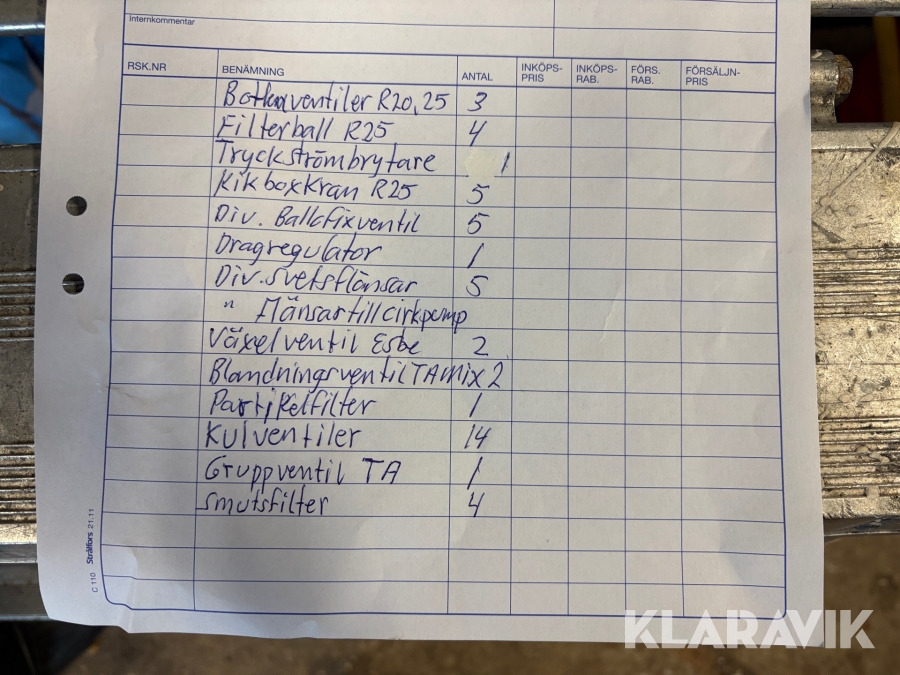 Internkommentar
RSK.NR BENÄMNING ANTAL INKÖPS-PRIS INKÖPS-RAB. FÖRS. RAB. FÖRSÄLJN-PRIS
Bottenventiler R20,25 3
Filterball R25 4
Tryckströmbrytare 1
Kikboxkran R25 5
Div. Ballofixventil 5
Dragregulator 1
Div. svetsflänsar 5
" Flänsar till cirkpump
Växelventil Esbe 2
Blandningsventil TA mix 2
Partikelfilter 1
Kulventiler 14
Gruppventil TA 1
Smutsfilter 4
C 110 Strålfors 21.11
KLARAVIK